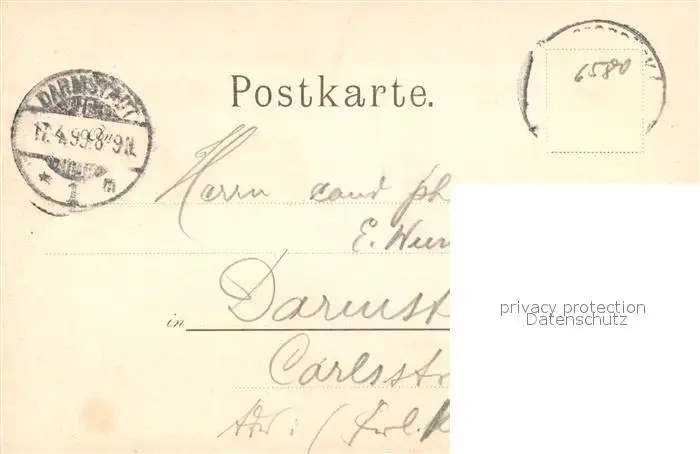 DARMSTADT
17.4.99.8-9N.
* 1 m
6580
Postkarte.
Herrn cand ph
E. Wun
in Darmst
Carlsstr
Adr: (Frl. K
privacy protection
Datenschutz